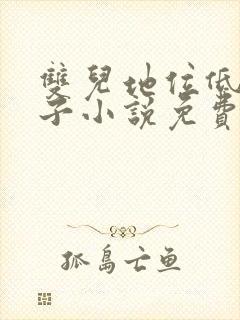 雙兒地位低
子小說免費
孤島亡鱼